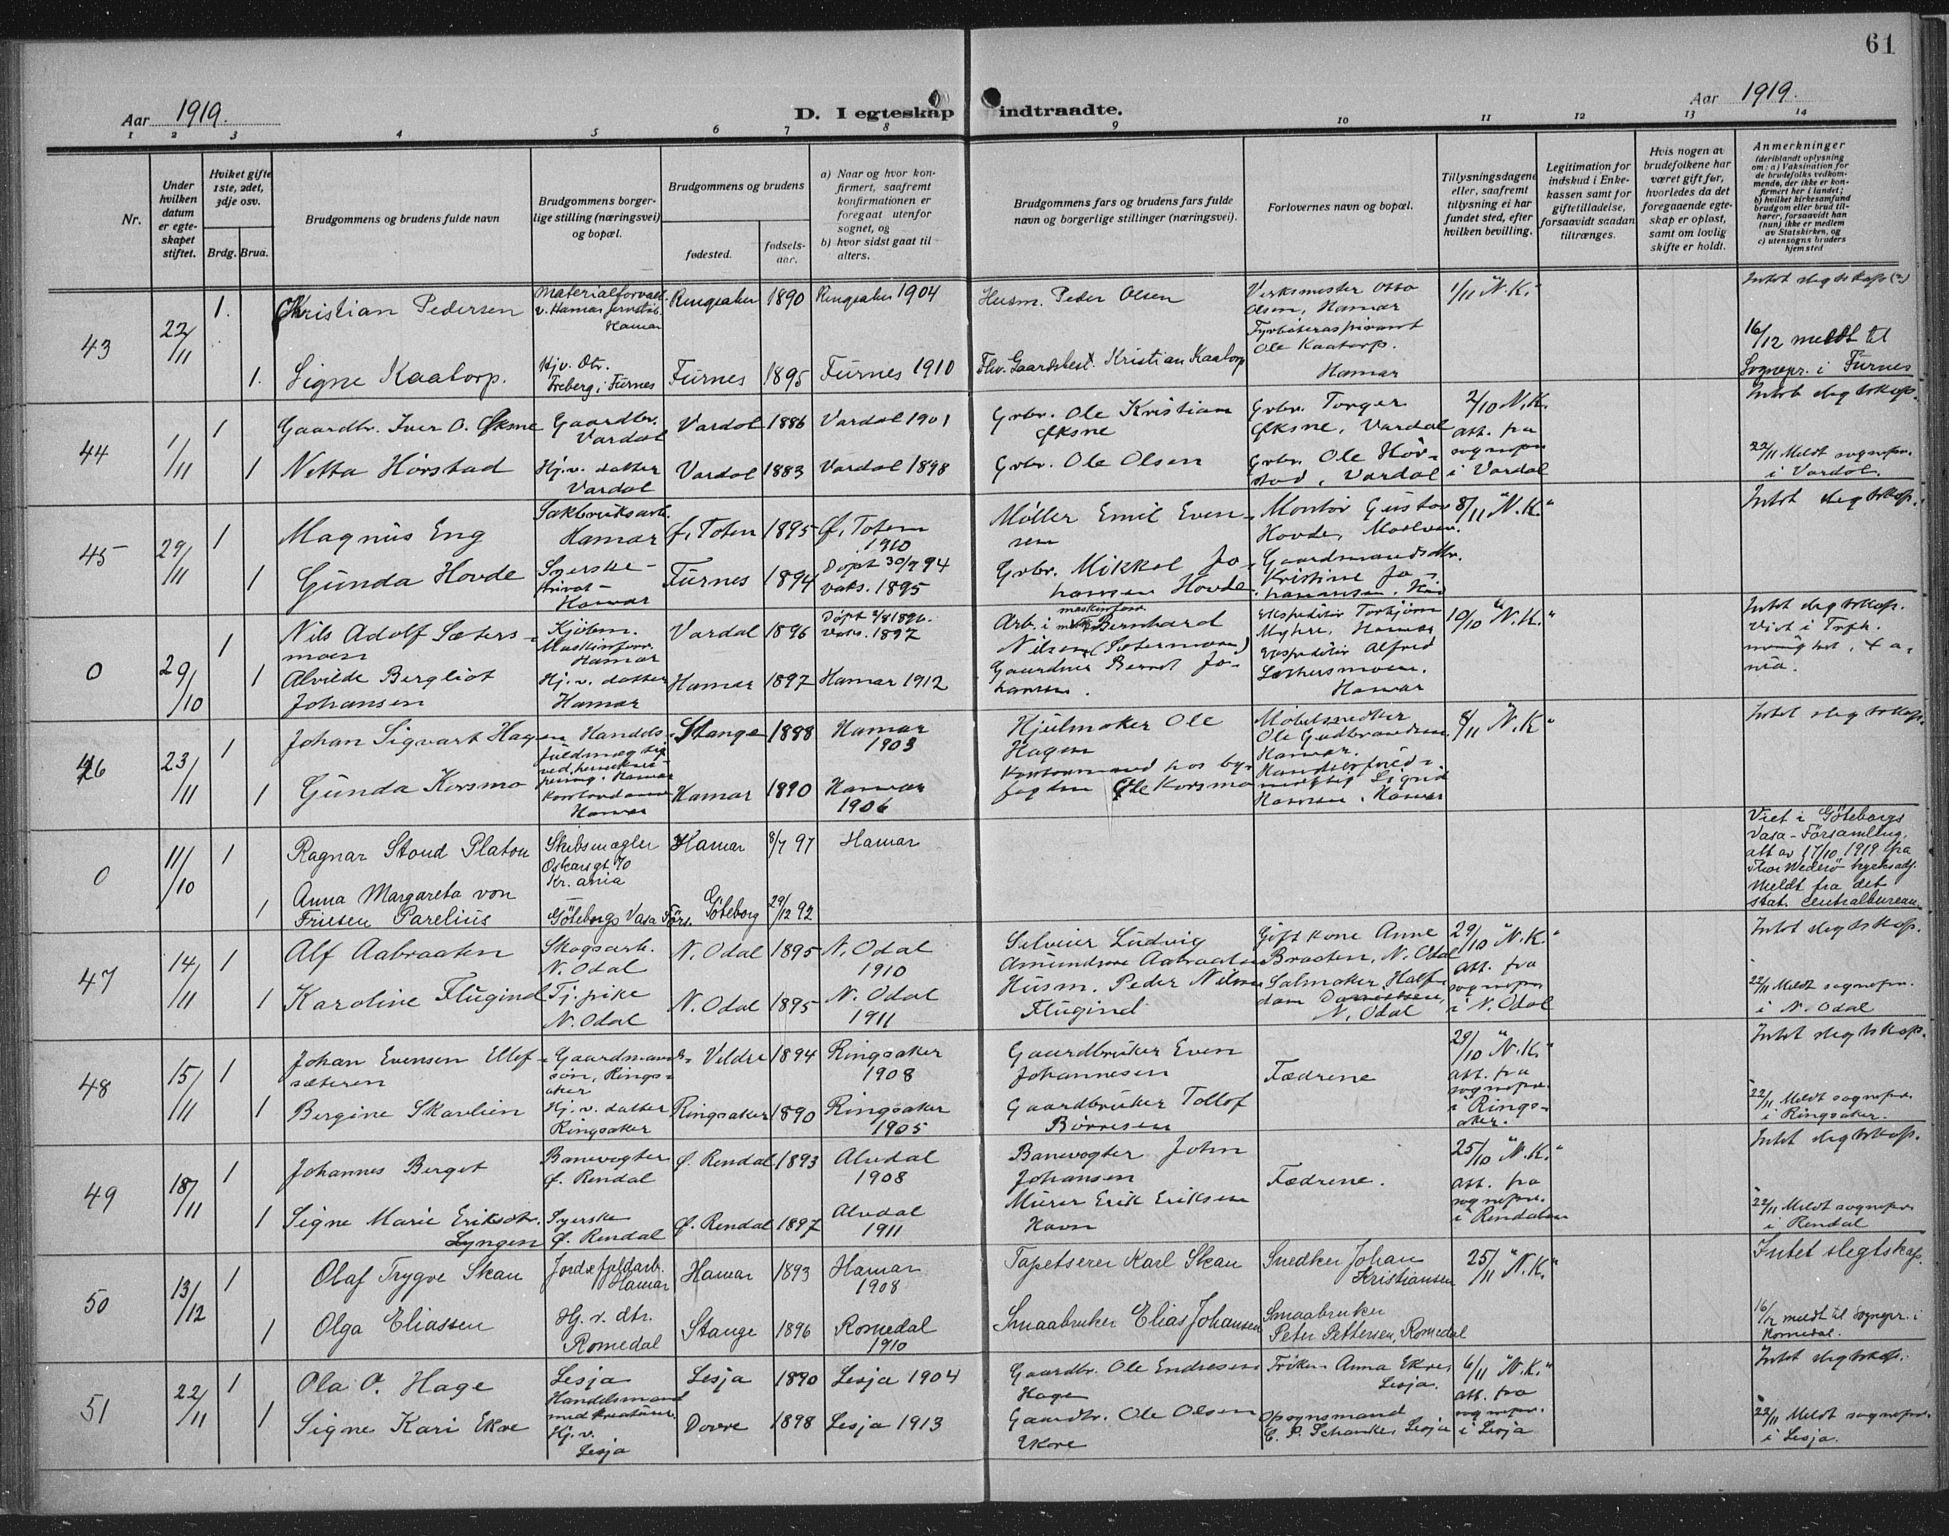 61
Aar 1919.
D. I egteskap indtraadte.
Aar 1919.
1 2 3 4 5 6 7 8 9 10 11 12 13 14
Nr.
Under hvilken datum er egteskapet stiftet.
Hvilket gifte 1ste, 2det, 3dje osv.
Brdg. Brud.
Brudgommens og brudens fulde navn
Brudgommens og brudens borgerlige stilling (næringsvei) og bopæl.
Brudgommens og brudens
fødested.
fødselsaar.
a) Naar og hvor konfirmert, saafremt konfirmationen er foregaat utenfor sognet, og
b) hvor sidst gaat til alters.
Brudgommens fars og brudens fars fulde navn og borgerlige stillinger (næringsvei).
Forlovernes navn og bopæl.
Tillysningsdagene eller, saafremt tillysning ei har fundet sted, efter hvilken bevilling.
Legitimation for indskud i Enkekassen samt for giftetilladelse, forsaavidt saadan tiltrænges.
Hvis nogen av brudefolkene har været gift før, hvorledes da det foregaaende egteskap er opløst, samt om lovlig skifte er holdt.
Anmerkninger
(deriblandt oplysning om: a) Vaksination for de brudefolks vedkommende, der ikke er konfirmert her i landet; b) hvilket kirkesamfund brudgom eller brud tilhører, forsaavidt han (hun) ikke er medlem av Statskirken, og c) utensogns bruders hjemsted
43 22/11 1. Kristian Pedersen Materialforvalt. v. Hamar jernstøb. Hamar Ringsaker 1890 Ringsaker 1904 Husm. Peder Olsen Verksmester Otto Olsen, Hamar 1/11 "N.K." Intet slegtskap
1. Signe Kaatorp. Hjv. Dtr. Freberg i Furnes Furnes 1895 Furnes 1910 Fhv. Gaardbest. Kristian Kaatorp Fyrbøteraspirant Ole Kaatorp. Hamar 16/12 meldt til Sognepr. i Furnes
44 1/11 1 Gaardbr. Iver O. Øksne Gaardbr. Vardal Vardal 1886 Vardal 1901 Grbr. Ole Kristian Øksne Grbr. Torger Øksne, Vardal 2/10 N.K. att. fra sognepr. i Vardal Intet slegtskap.
1 Netta Hørstad Hj.v. datter Vardal Vardal 1883 Vardal 1898 Grbr. Ole Olsen Grbr. Ole Hørstad, Vardal 22/11 Meldt sognepr. i Vardal.
45 29/11 1 Magnus Eng Hamar Ø. Toten 1895 Ø. Toten 1910 Møller Emil Evensen Montør Gustav Hovde, Moelven 8/11 "N.K." Intet slegtskap.
1 Gunda Hovde Syerske privat Hamar Furnes 1894 Døpt 30/9 94 vaks. 1895 Grbr. Mikkel Johansen Hovde Gaardmandsdtr. Kristine Johannsen,
0 29/10 1 Nils Adolf Sætersmoen Kjøbm. Hamar Vardal 1896 Døpt 2/8 1896. Vaks. 1897 Arb. i maskinforr. Bernhard Nilsen (Sætermoen) Ekspeditør Torbjørn Myhre, Hamar 10/10 "N.K." Intet slegtskap. Viet i
1 Alvilde Bergliot Johansen Hj.v. datter Hamar Hamar 1897 Hamar 1912 Gaardbr. Bernt Johansen. Ekspeditør Alfred Hamar
46 23/11 1 Johan Sigvart Hagen Handelsfuldmægtig Hamar Stange 1888 Hamar 1903 Hjulmaker Ole Hagen Møbelsnedker Ole Gudbrandsen Hamar. 8/11 "N.K." Intet slegtskap.
1 Gunda Korsmo Kontordame Hamar Hamar 1890 Hamar 1906 Kontormand hos byfogden Ole Korsmo Sigrid Hansen, Hamar
0 11/10 1 Ragnar Stoud Platou Skibsmægler Oskarsgt. 70 Kr.ania Hamar 8/7 97 Hamar Viet i Göteborgs Vasa-Församling. att av 17/10 1919 fra Thor Wedesö kyrkoadj. Meldt fra det stat. centralbureau
1 Anna Margareta von Friesen Parelius Göteborgs Vasa Förs. Göteborg 29/12 92
47 14/11 1 Alf Aabraaten Skogsarb. N. Odal N. Odal 1895 N. Odal 1910 Selveier Ludvig Amundsen Aabraaten Gift kone Anne Braaten, N. Odal 29/10 "N.K." att. fra sognepr. i N. Odal Intet slegtskap.
1 Karoline Flugind Tj.pike N. Odal N. Odal 1895 N. Odal 1911 Husm. Peder Nilsen Flugind Salmaker Halfdan N. Odal 22/11 Meldt sognepr. i N. Odal
48 15/11 1 Johan Evensen Ellefsæteren Gaardmandssøn, Ringsaker Veldre 1894 Ringsaker 1908 Gaardbruker Even Johannesen Fædrene 29/10 "N.K." att. fra sognepr. i Ringsaker. Intet slegtskap.
1 Bergine Skavlien Hj.v. datter Ringsaker Ringsaker 1890 Ringsaker 1905 Gaardbruker Tollof Børresen 22/11 Meldt sognepr. i Ringsaker.
49 18/11 1 Johannes Berget Banevogter Ø. Rendal Ø. Rendal 1893 Alvdal 1908 Banevogter John Johansen Fædrene. 25/10 "N.K." att. fra sognepr. i Rendalen Intet slegtskap.
1 Signe Marie Eriksdtr. Lyngen Syerske Ø. Rendal Ø. Rendal 1897 Alvdal 1911 Murer Erik Eriksen Havn 22/11 Meldt sognepr. i Rendal
50 13/12 1 Olaf Trygve Skau Jord & fjeldarb. Hamar Hamar 1893 Hamar 1908 Tapetserer Karl Skau Snedker Johan Kristiansen 25/11 "N.K." Intet slegtskap.
1 Olga Eliassen Hj. v. dtr. Romedal Stange 1896 Romedal 1910 Smaabruker Elias Johansen Smaabruker Peter Pettersen, Romedal 16/12 meldt til Sognepr. i Romedal.
51 22/11 1 Ola O. Hage Lesja Handelsmand Lesja 1890 Lesja 1904 Gaardbr. Ole Endresen Hage Frøken Anna Ekre, Lesja. 6/11 "N.K." att. fra sognepr. i Lesja Intet slegtskap.
1 Signe Kari Ekre Hj.v. Lesja Dovre 1898 Lesja 1913 Gaardbr. Ole Olsen Ekre Opsynsmand C. P. Schanke, Lesja 22/11 Meldt sognepr. i Lesja.